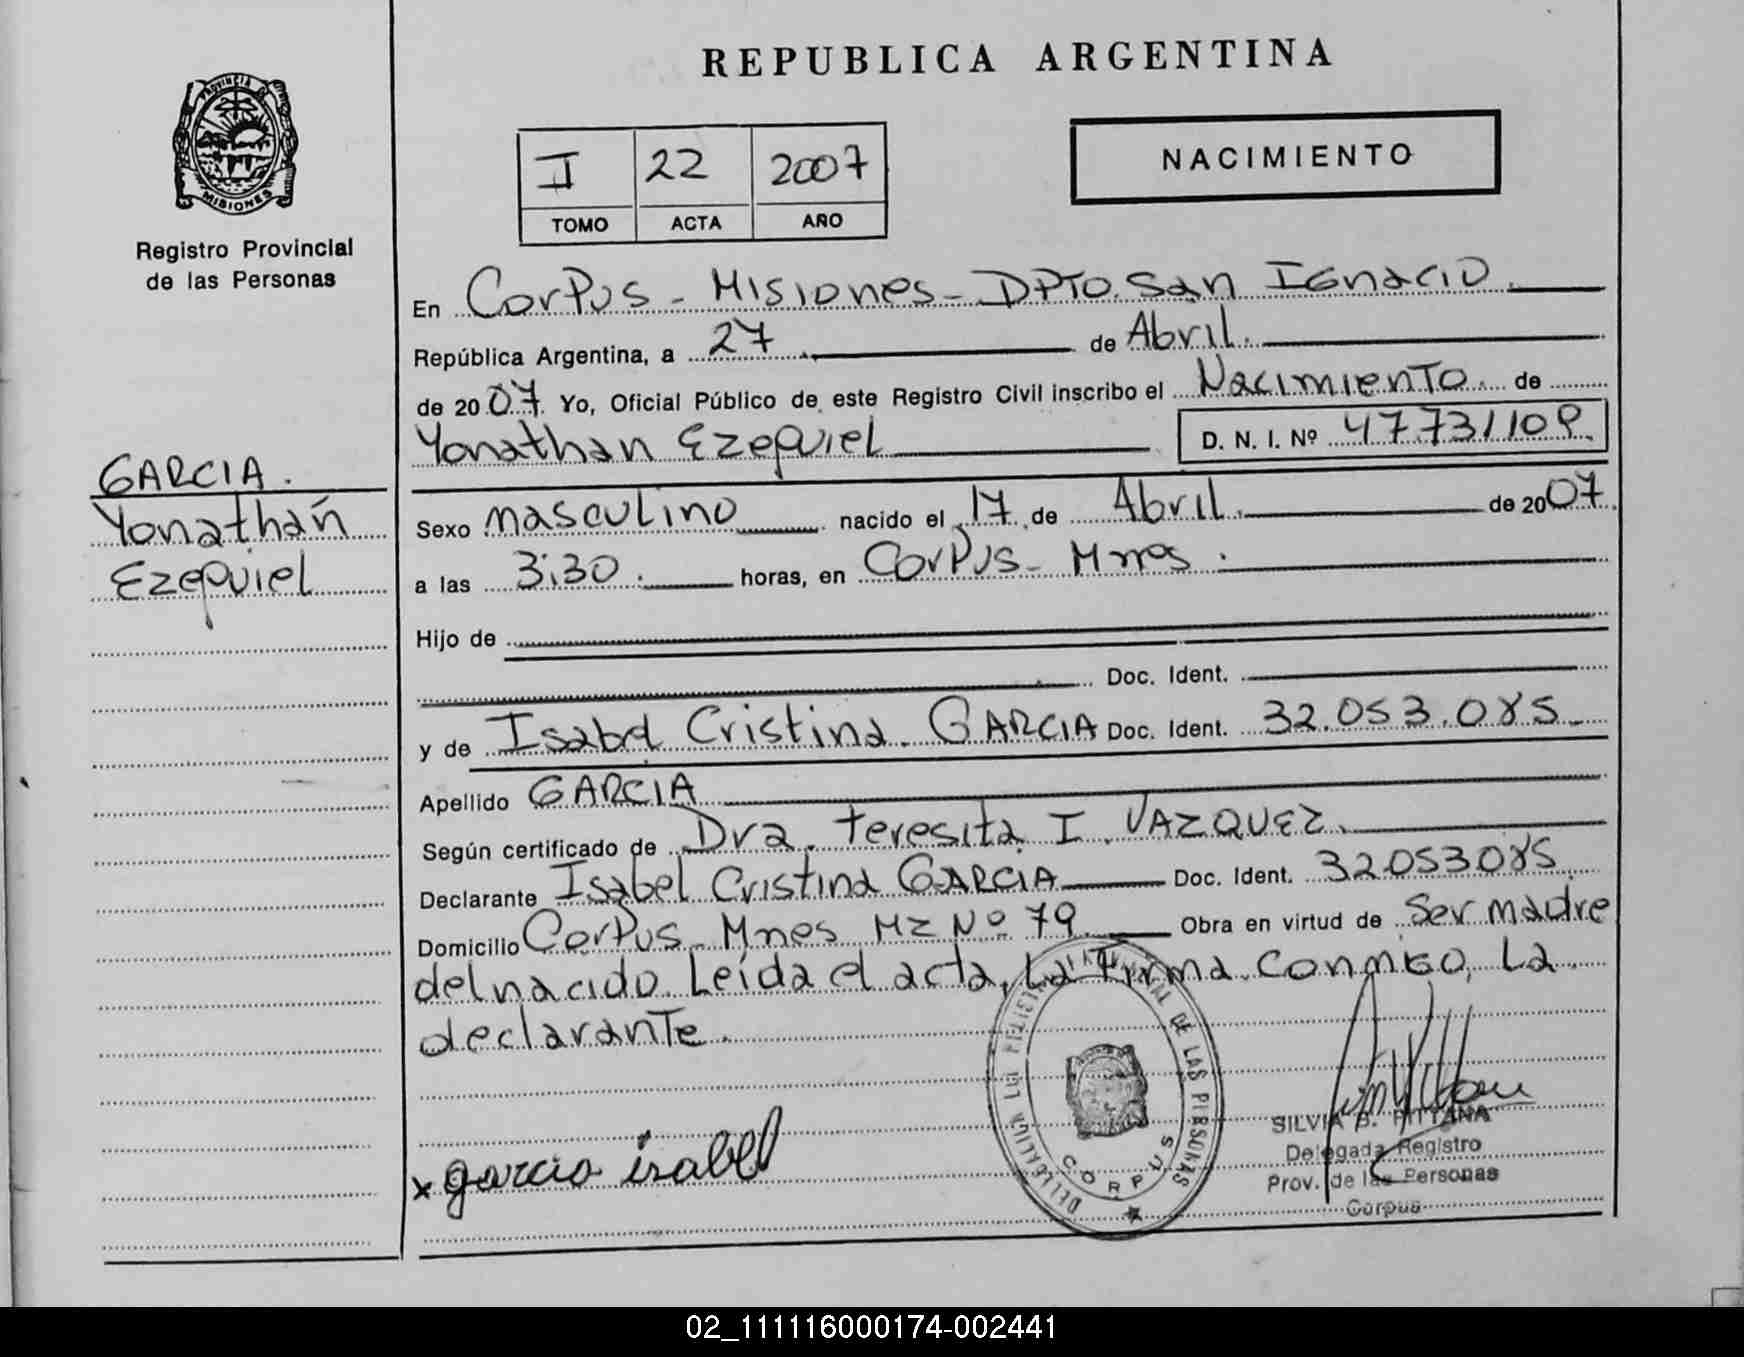 REPUBLICA ARGENTINA
PROVINCIA DE
MISIONES
Registro Provincial
de las Personas
I 22 2007
TOMO ACTA AÑO
NACIMIENTO
En Corpus - Misiones - DPTO. San Ignacio
República Argentina, a 27 de Abril.
de 2007. Yo, Oficial Público de este Registro Civil inscribo el Nacimiento de
Yonathan Ezequiel D. N. I. Nº 47731109
GARCIA.
Yonathan
Ezequiel
Sexo masculino nacido el 17 de Abril. de 2007
a las 3:30 horas, en Corpus - Mnes.
Hijo de
Doc. Ident.
y de Isabel Cristina GARCIA Doc. Ident. 32.053.085
Apellido GARCIA
Según certificado de Dra. Teresita I. VAZQUEZ.
Declarante Isabel Cristina GARCIA Doc. Ident. 32053085
Domicilio Corpus - Mnes Mz Nº 79 Obra en virtud de Ser madre
del nacido. Leída el acta, La Firma conmigo, La
declarante.
x garcia isabel
DE LAS PERSONAS
CORPUS
SILVIA B. PITTANA
Delegada Registro
Prov. de las Personas
Corpus
02_111116000174-002441